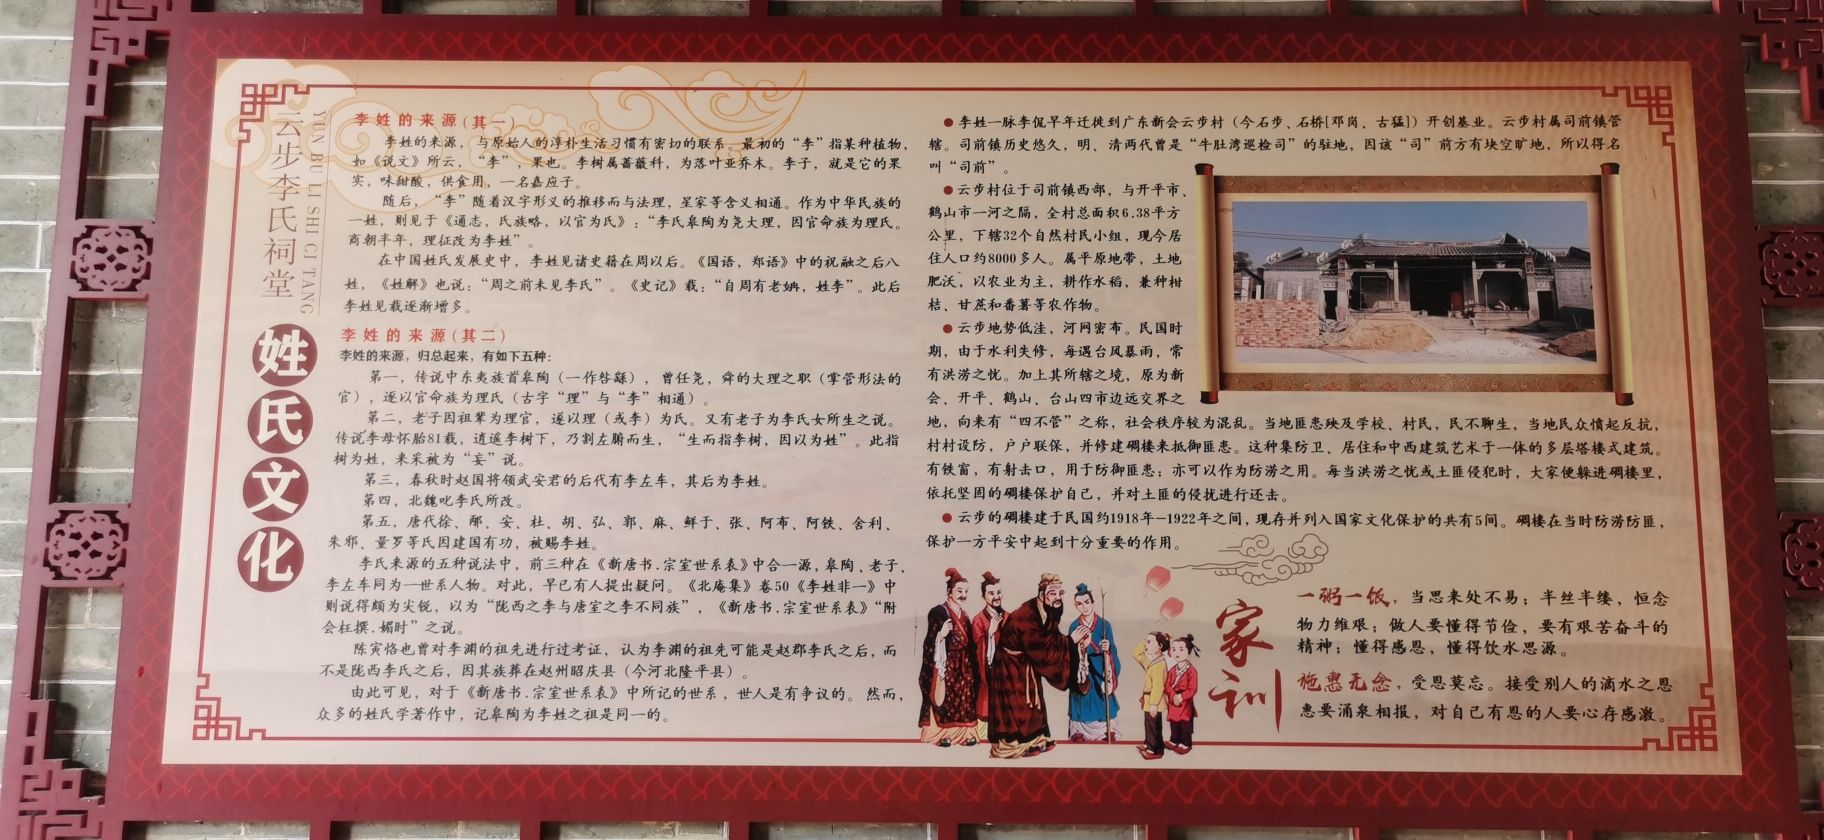 云步李氏祠堂
YUN BU LI SHI CI TANG
姓氏文化
李姓的来源(其一)
李姓的来源，与原始人的淳朴生活习惯有密切的联系。最初的“李”指某种植物，
如《说文》所云，“李”，果也。李树属蔷薇科，为落叶亚乔木。李子，就是它的果
实，味甜酸，供食用，一名嘉应子。
随后，“李”随着汉字形义的推移而与法理，星家等含义相通。作为中华民族的
一姓，则见于《通志，氏族略，以官为氏》：“李氏皋陶为尧大理，因官命族为理氏。
商朝半年，理征改为李姓”。
在中国姓氏发展史中，李姓见诸史籍在周以后。《国语，郑语》中的祝融之后八
姓，《姓解》也说：“周之前未见李氏”。《史记》载：“自周有老妠，姓李”。此后
李姓见载逐渐增多。
李姓的来源(其二)
李姓的来源，归总起来，有如下五种：
第一，传说中东夷族首皋陶（一作咎繇），曾任尧，舜的大理之职（掌管形法的
官），遂以官命族为理氏（古字“理”与“李”相通）。
第二，老子因祖辈为理官，遂以理（或李）为氏。又有老子为李氏女所生之说。
传说李母怀胎81载，逍遥李树下，乃割左腑而生，“生而指李树，因以为姓”。此指
树为姓，来采被为“妄”说。
第三，春秋时赵国将领武安君的后代有李左车，其后为李姓。
第四，北魏叱李氏所改。
第五，唐代徐、邴、安、杜、胡、弘、郭、麻、鲜于、张、阿布、阿铁、舍利、
朱邪、量罗等氏因建国有功，被赐李姓。
李氏来源的五种说法中，前三种在《新唐书.宗室世系表》中合一源，皋陶、老子、
李左车同为一世系人物。对此，早已有人提出疑问。《北庵集》卷50《李姓非一》中
则说得颇为尖锐，以为“陇西之李与唐室之李不同族”，《新唐书.宗室世系表》“附
会枉撰.媚时”之说。
陈寅恪也曾对李渊的祖先进行过考证，认为李渊的祖先可能是赵郡李氏之后，而
不是陇西李氏之后，因其族葬在赵州昭庆县（今河北隆平县）。
由此可见，对于《新唐书.宗室世系表》中所记的世系，世人是有争议的。然而，
众多的姓氏学著作中，记皋陶为李姓之祖是同一的。
●李姓一脉李侃早年迁徙到广东新会云步村（今石步、石桥[邓岗、古猛]）开创基业。云步村属司前镇管
辖。司前镇历史悠久，明、清两代曾是“牛肚湾巡检司”的驻地，因该“司”前方有块空旷地，所以得名
叫“司前”。
●云步村位于司前镇西部，与开平市、
鹤山市一河之隔，全村总面积6.38平方
公里，下辖32个自然村民小组，现今居
住人口约8000多人。属平原地带，土地
肥沃，以农业为主，耕作水稻，兼种柑
桔、甘蔗和番薯等农作物。
●云步地势低洼，河网密布。民国时
期，由于水利失修，每遇台风暴雨，常
有洪涝之忧。加上其所辖之境，原为新
会、开平、鹤山、台山四市边远交界之
地，向来有“四不管”之称，社会秩序较为混乱。当地匪患殃及学校、村民，民不聊生，当地民众愤起反抗，
村村设防，户户联保，并修建碉楼来抵御匪患。这种集防卫、居住和中西建筑艺术于一体的多层塔楼式建筑。
有铁窗，有射击口，用于防御匪患；亦可以作为防涝之用。每当洪涝之忧或土匪侵犯时，大家便躲进碉楼里，
依托坚固的碉楼保护自己，并对土匪的侵扰进行还击。
●云步的碉楼建于民国约1918年—1922年之间，现存并列入国家文化保护的共有5间。碉楼在当时防涝防匪，
保护一方平安中起到十分重要的作用。
家训
一粥一饭，当思来处不易；半丝半缕，恒念
物力维艰；做人要懂得节俭，要有艰苦奋斗的
精神；懂得感恩，懂得饮水思源。
施惠无念，受恩莫忘。接受别人的滴水之恩
惠要涌泉相报，对自己有恩的人要心存感激。